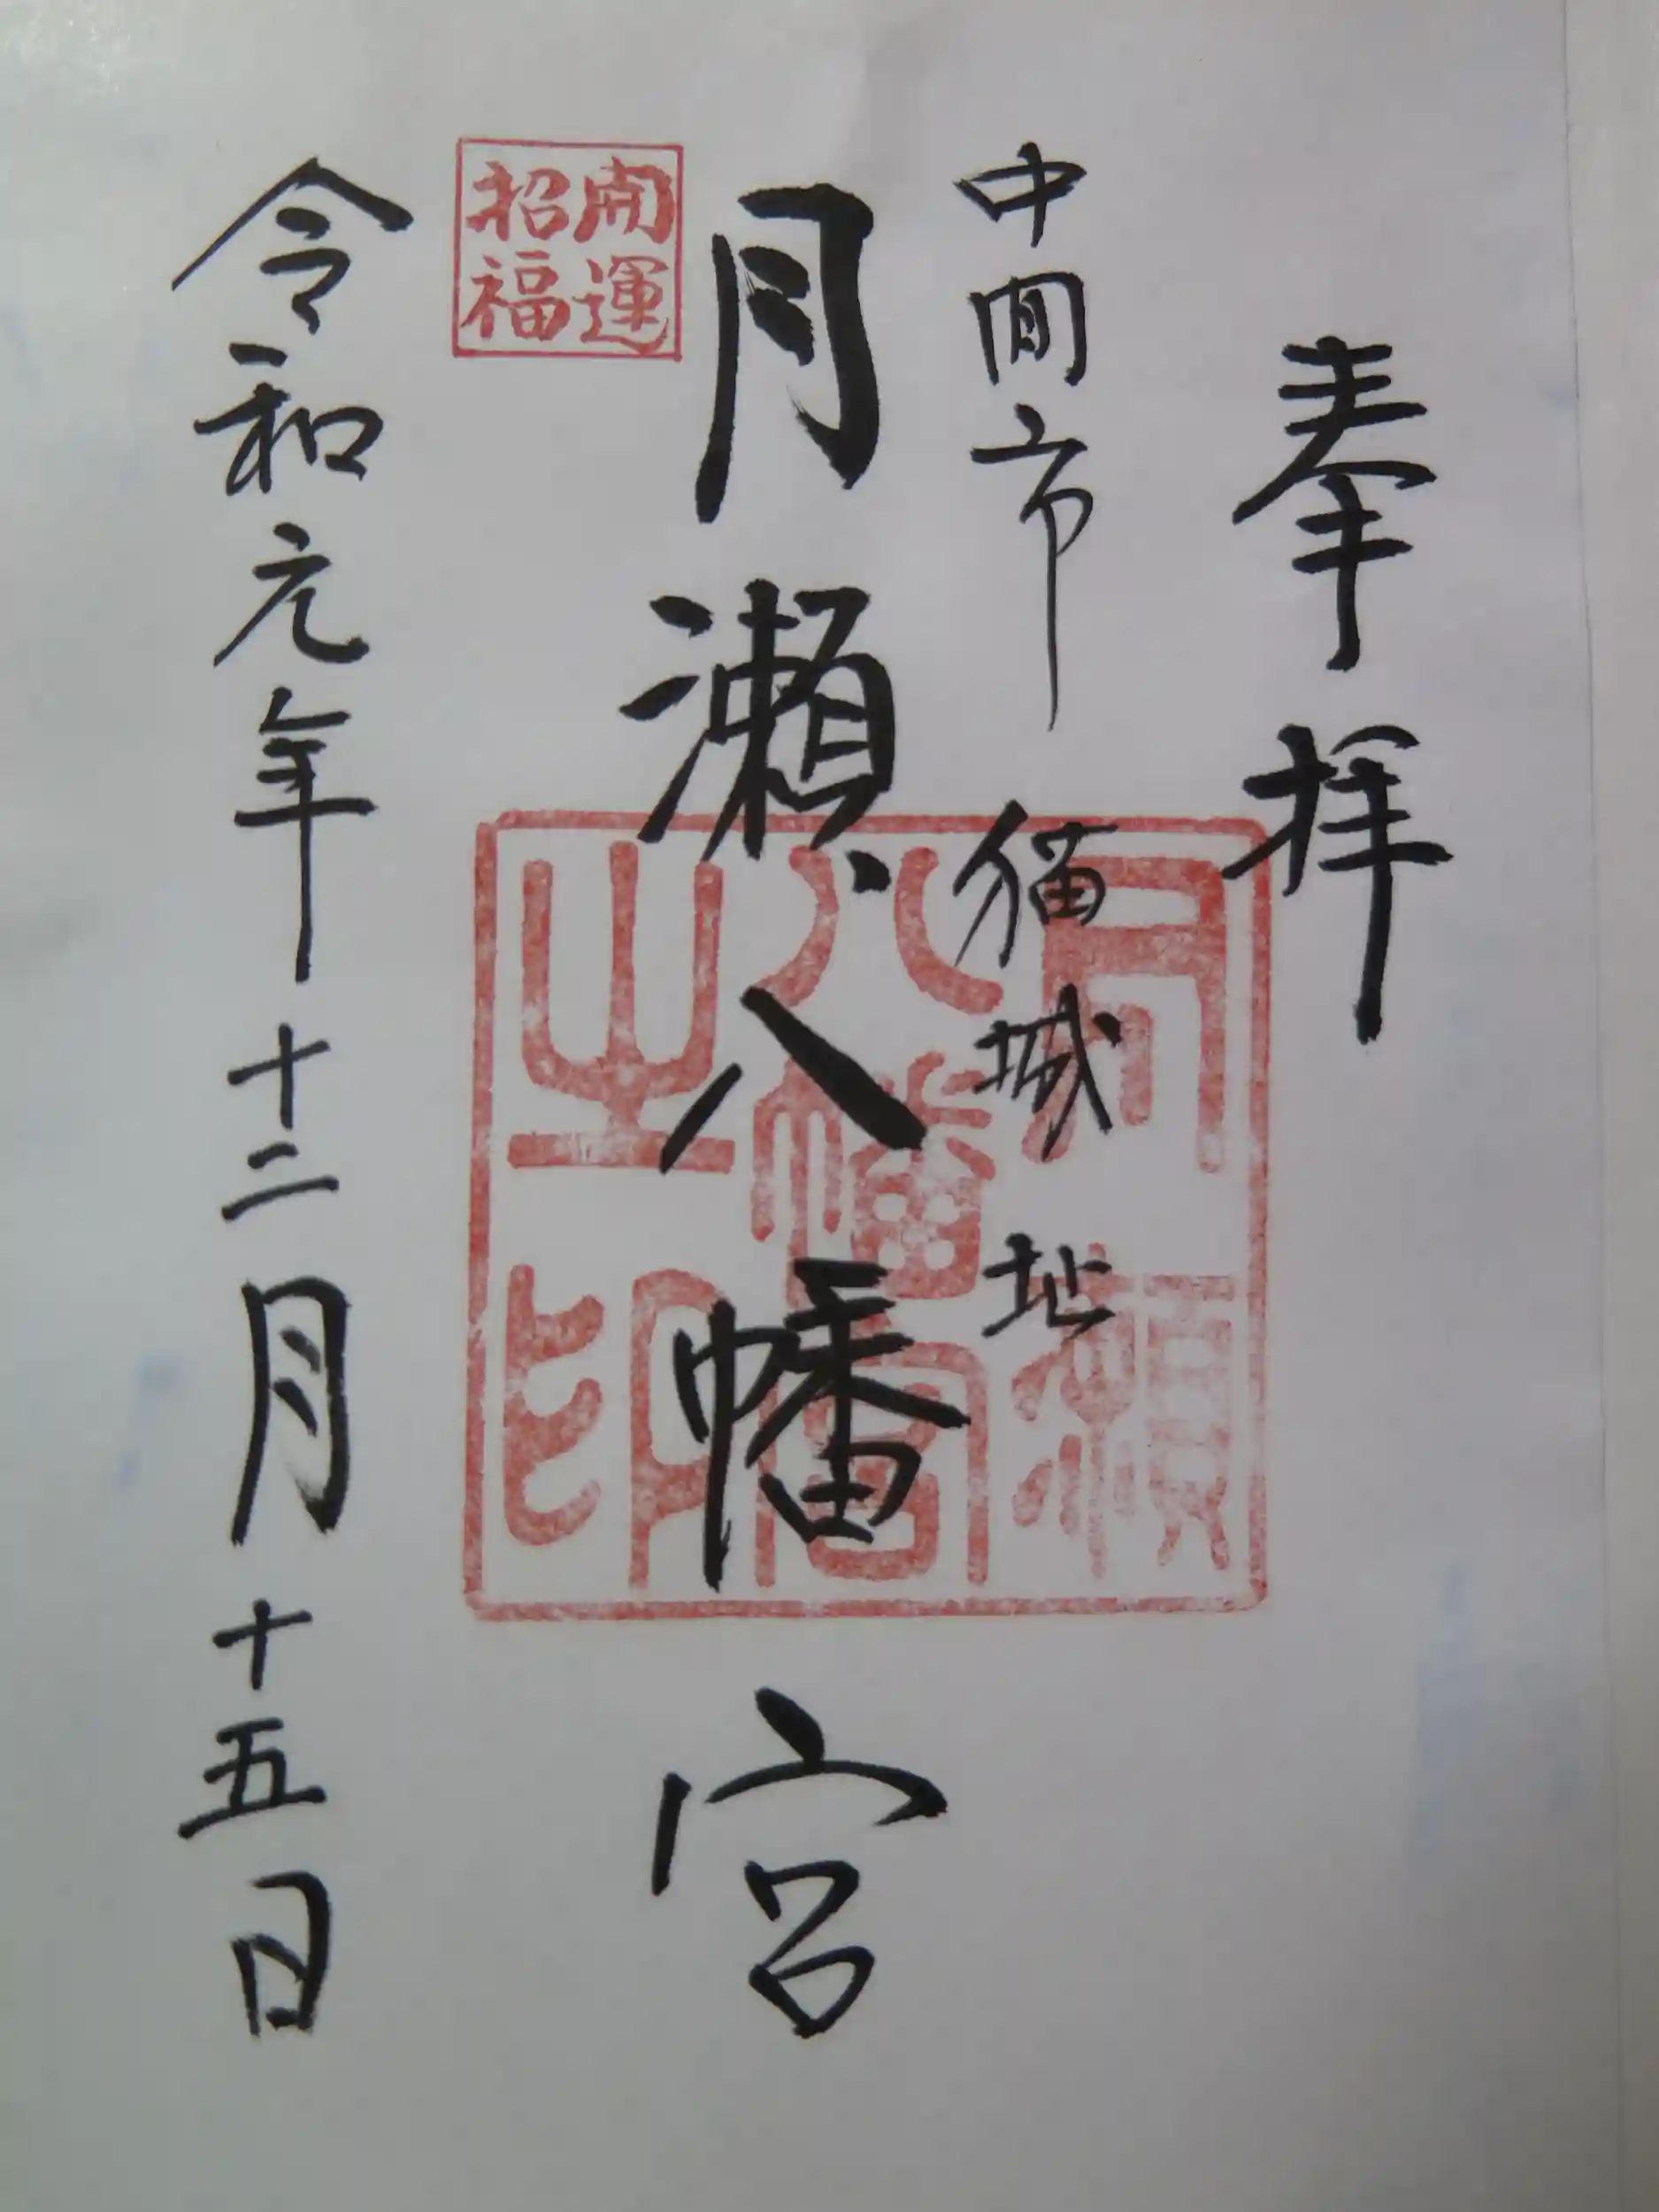 奉拝
中間市 猫城址
月瀬八幡宮
開運
招福
月瀬
八幡宮
之印
令和元年十二月十五日